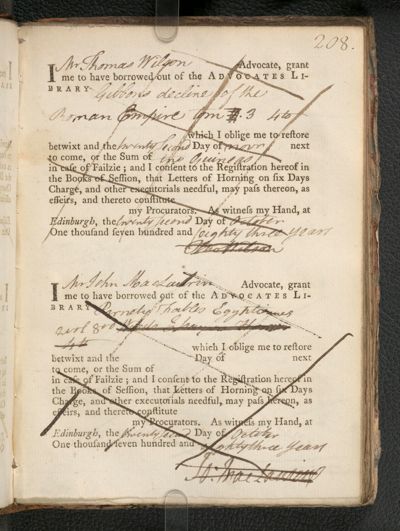 208.
I Mr Thomas Wilson Advocate, grant
me to have borrowed out of the ADVOCATES LI-
BRARY Gibbons decline of the
Roman Empire vm 3 4to
which I oblige me to reſtore
betwixt and the twenty second Day of next
to come, or the Sum of two Guineas
in caſe of Failzie; and I conſent to the Regiſtration hereof in
the Books of Seſſion, that Letters of Horning on ſix Days
Charge, and other executorials needful, may paſs thereon, as
effeirs, and thereto conſtitute
my Procurators. As witneſs my Hand, at
Edinburgh, the twenty second Day of October
One thouſand ſeven hundred and eighty three years
Tho Wilson
I Mr John MacLaurin Advocate, grant
me to have borrowed out of the ADVOCATES LI-
BRARY
4to which I oblige me to reſtore
betwixt and the Day of next
to come, or the Sum of
in caſe of Failzie; and I conſent to the Regiſtration hereof in
the Books of Seſſion, that Letters of Horning on ſix Days
Charge, and other executorials needful, may paſs hereon, as
effeirs, and thereto conſtitute
my Procurators. As witneſs my Hand, at
Edinburgh, the twenty second Day of October
One thouſand ſeven hundred and eighty three years
Jo. MacLaurin